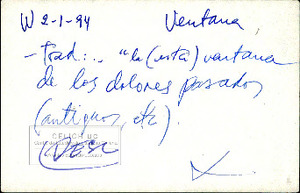 W 2-1-94 Ventana
- Trad:.. "la (esta) ventana
de los dolores pasados
(antiguos, etc).
CELICH UC